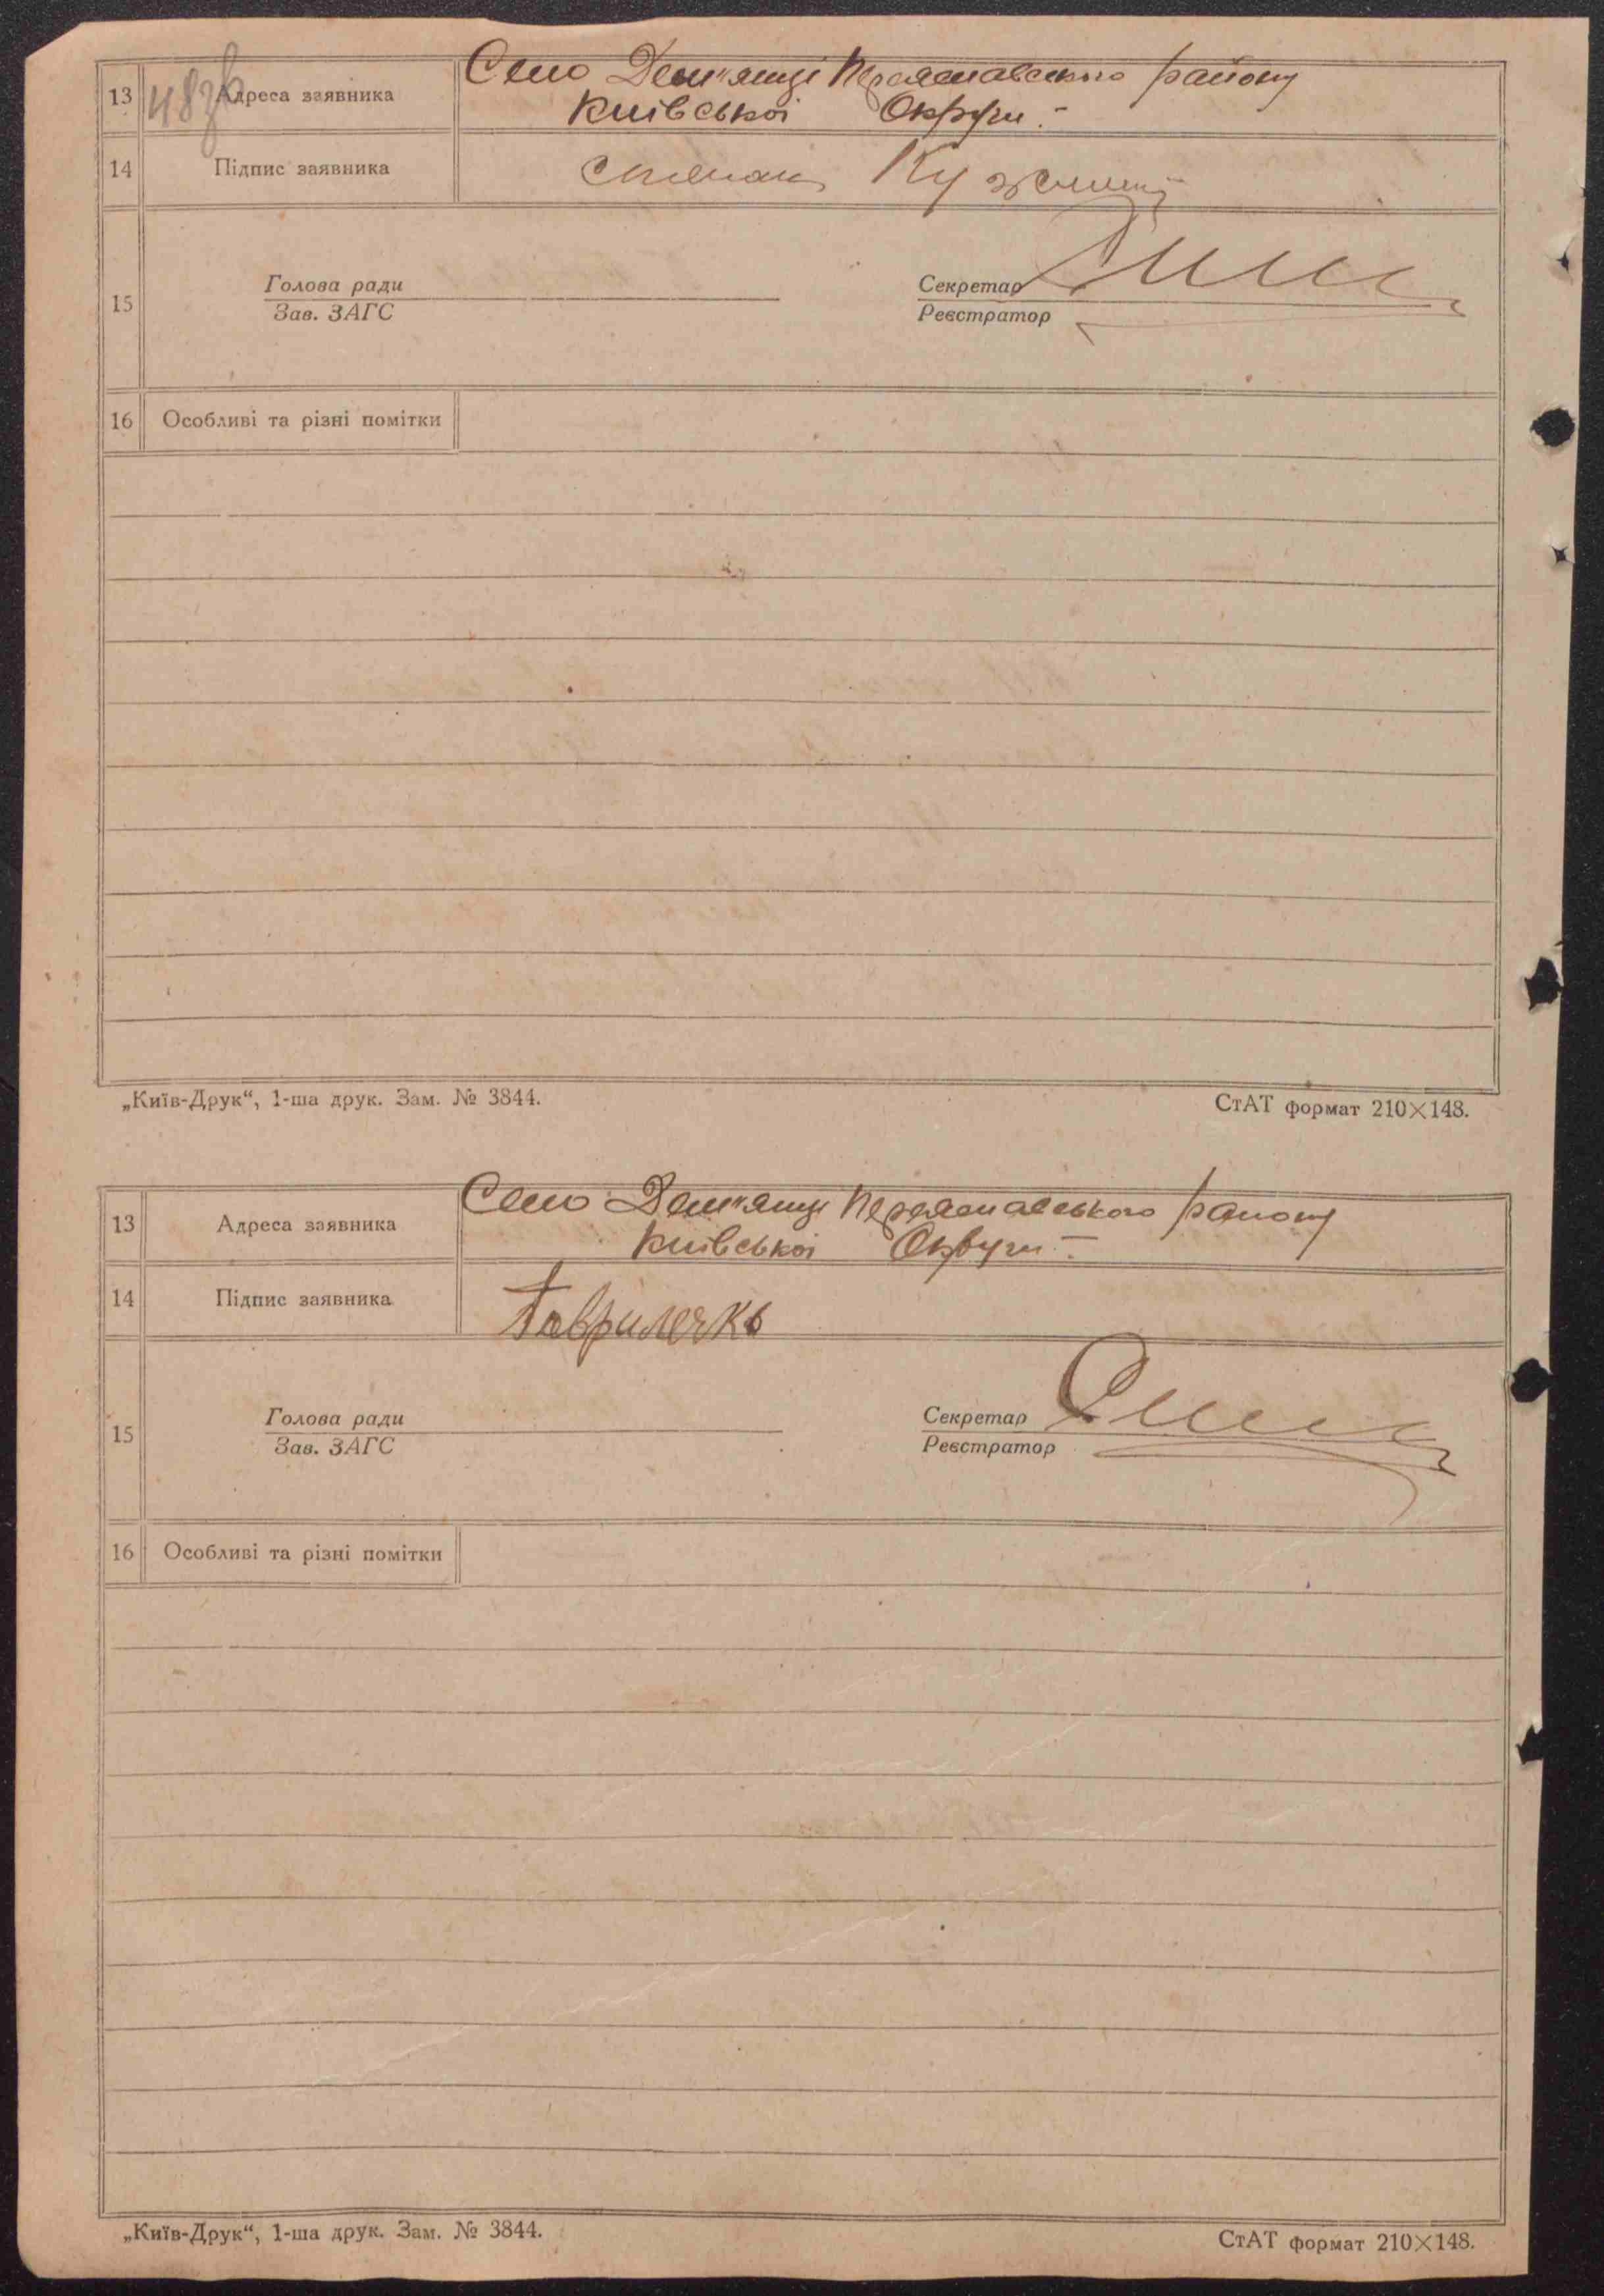 48зв
13 Адреса заявника Село Дем'янці Переяславського району
Київської Округи.-
14 Підпис заявника Степан
15 Голова ради Секретар
Зав. ЗАГС Реєстратор
16 Особливі та різні помітки
„Київ-Друк“, 1-ша друк. Зам. № 3844. СтАТ формат 210×148.
13 Адреса заявника Село Дем'янці Переяславського району
Київської Округи.-
14 Підпис заявника Гавриленко
15 Голова ради Секретар
Зав. ЗАГС Реєстратор
16 Особливі та різні помітки
„Київ-Друк“, 1-ша друк. Зам. № 3844. СтАТ формат 210×148.